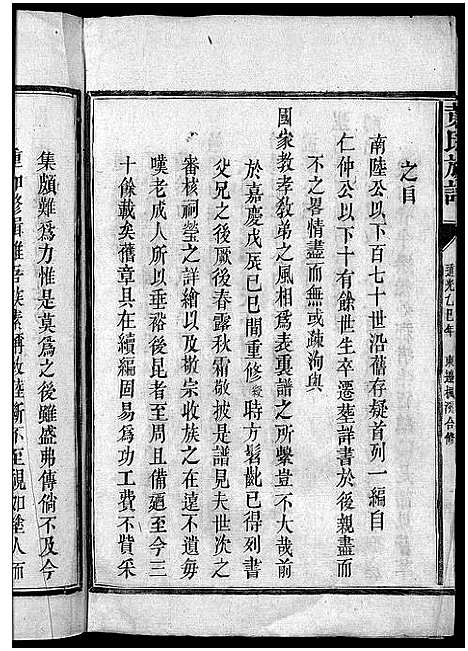 黃氏族譜
道光乙巳年
東邊楓溪合修
之目
南陸公以下百七十世沿舊存疑首列一編自
仁仲公以下十有餘世生卒遷塟詳書於後親盡而
不之畧情盡而無或疎洵與
國家教孝教弟之風相為表裏譜之所繫豈不大哉前
於嘉慶戊辰己巳間重修 時方髫齔已得列書
父兄之後厥後春露秋霜敬披是譜見夫世次之
審核祠塋之詳繪以及敬宗收族之在遠不遺每
嘆老成人所以垂裕後昆者至周且備廼至今三
十餘載矣舊章具在續編固易為功工費不貲采
集頗難為力惟是莫為之後雖盛弗傳倘不及今
重加修緝雖吾族素稱敦睦斷不至視如塗人而